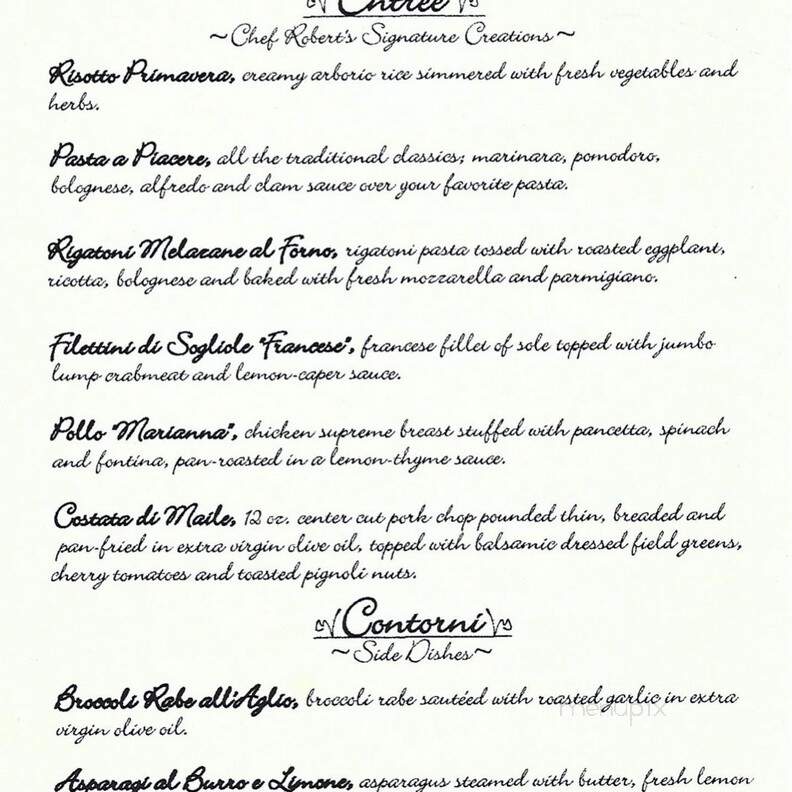 Entrée
~Chef Robert's Signature Creations~
Risotto Primavera, creamy arborio rice simmered with fresh vegetables and
herbs.
Pasta a Piacere, all the traditional classics; marinara, pomodoro,
bolognese, alfredo and clam sauce over your favorite pasta.
Rigatoni Melazane al Forno, rigatoni pasta tossed with roasted eggplant,
ricotta, bolognese and baked with fresh mozzarella and parmigiano.
Filettini di Sogliole "Francese", francese fillet of sole topped with jumbo
lump crabmeat and lemon-caper sauce.
Pollo "Marianna", chicken supreme breast stuffed with pancetta, spinach
and fontina, pan-roasted in a lemon-thyme sauce.
Costata di Maile, 12 oz. center cut pork chop pounded thin, breaded and
pan-fried in extra virgin olive oil, topped with balsamic dressed field greens,
cherry tomatoes and toasted pignoli nuts.
Contorni
~Side Dishes~
Broccoli Rabe all'Aglio, broccoli rabe sautéed with roasted garlic in extra
virgin olive oil.
menupix
Asparagi al Burro e Limone, asparagus steamed with butter, fresh lemon